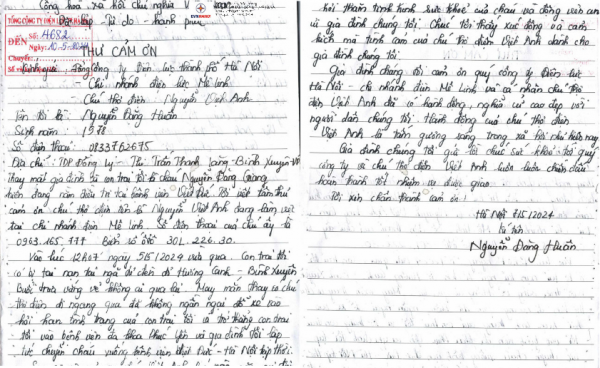 Cộng hòa xã hội chủ nghĩa V
Độc lập - Tự do - hạnh phúc
EVNHANOI
TỔNG CÔNG TY ĐIỆN LỰC
ĐẾN Số: 4682
Ngày: 10-5-2024
Chuyển:
THƯ CẢM ƠN
Kính gửi: Tổng Công ty điện lực thành phố Hà Nội
- Chi nhánh điện lực Mê linh
- Chú thợ điện Nguyễn Việt Anh
Tên tôi là: Nguyễn Đăng Huấn
Sinh năm 1978
Số điện thoại: 0833762675
Địa chỉ: TDP Đồng Lý - Thị Trấn Thanh Lãng - Bình Xuyên VP
Thay mặt gia đình và con trai tôi là cháu Nguyễn Đăng
hiện đang nằm điều trị tại bệnh viện Việt Đức. Tôi viết tâm thư
cảm ơn chú thợ điện tên là Nguyễn Việt Anh đang làm việc
tại chi nhánh điện Mê linh. Số điện thoại của chú ấy là
0963.165.777 Biển số ô tô 30L. 226.30.
Vào lúc 12h07 ngày 5/5/2024 vừa qua Con trai tôi
có bị tai nạn tại ngã đi Hương Canh - Bình Xuyên
Buổi trưa vắng vẻ không ai qua lại. May mắn thay có chú
thợ điện đi ngang qua đã không ngần ngại đỗ xe vào
hỏi han tình trạng của con trai tôi và đưa con trai
tôi vào bệnh viện đa khoa Phúc Yên và gia đình tôi lập
tức chuyển cháu xuống bệnh viện Việt Đức - Hà Nội kịp thời.
hỏi thăm tình hình sức khỏe của cháu và động viên con
và gia đình chúng tôi. Chúc tôi thấy xúc động và cảm
kích mà tình cảm của chú thợ điện Việt Anh dành cho
gia đình chúng tôi.
Gia đình chúng tôi cảm ơn quý công ty điện lực
Hà Nội - chi nhánh điện Mê Linh và cá nhân chú thợ
điện Việt Anh đã có hành động, nghĩa cử cao đẹp với
người dân chúng tôi. Hành động của chú thợ điện
Việt Anh là tấm gương sáng trong xã hội chủ hiện nay
Gia đình chúng tôi, gửi lời chúc sức khỏe tới quý
công ty và chú thợ điện Việt Anh luôn luôn chiến đấu
hoàn thành tốt nhiệm vụ được giao.
Tôi xin chân thành cảm ơn!
Hà Nội 7/5/2024
Ký tên
Nguyễn Đăng Huấn